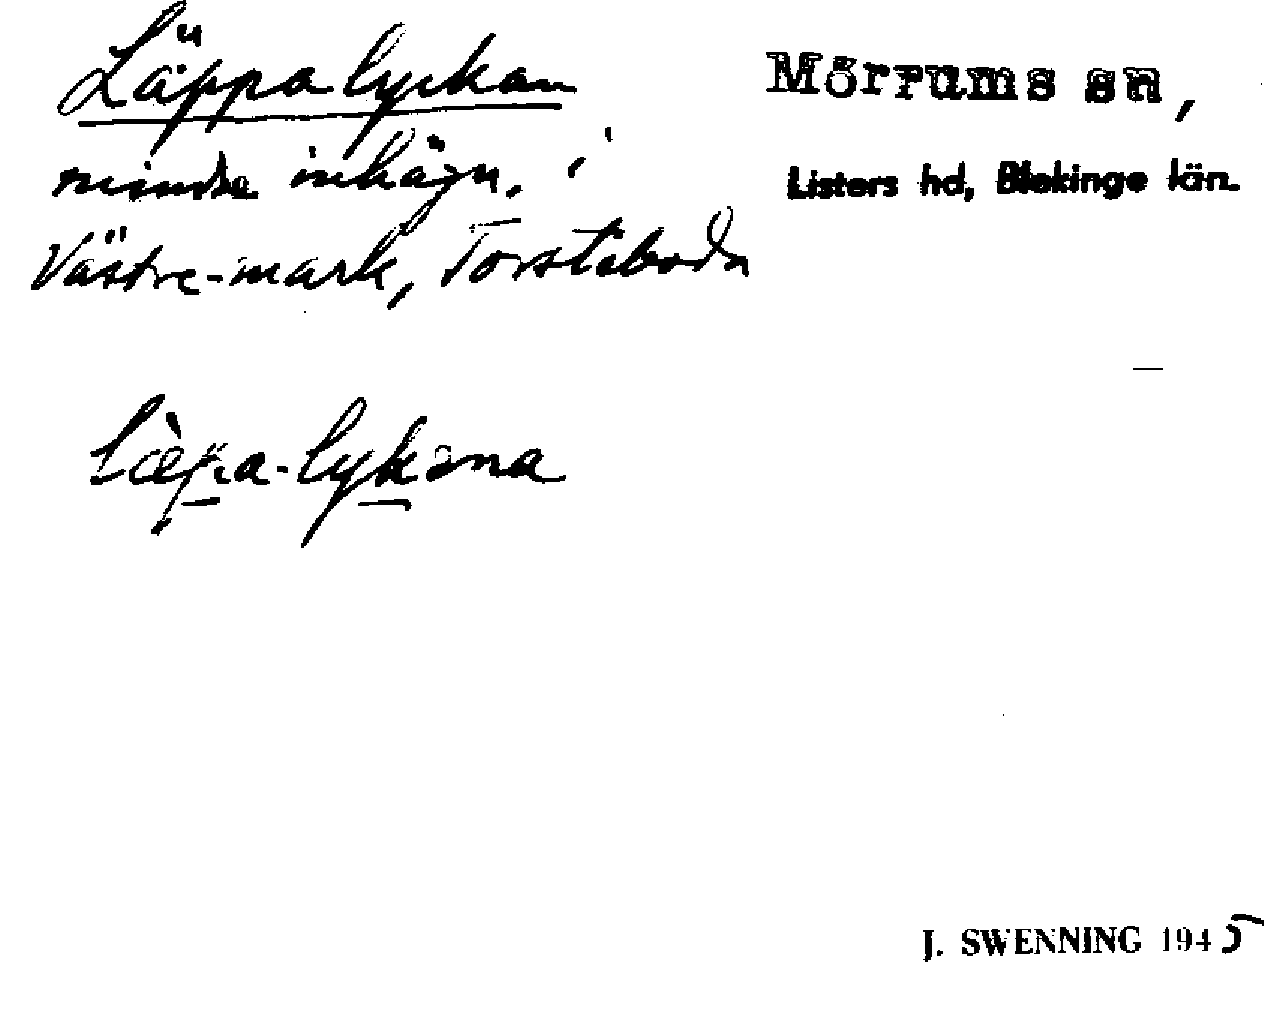 Läppalyckan
mindre inhägn. i
Västre-mark, Torstäboda
Mörrums sn,
Listers hd, Blekinge län.
lὲpa-lykana
J. SWENNING 1945